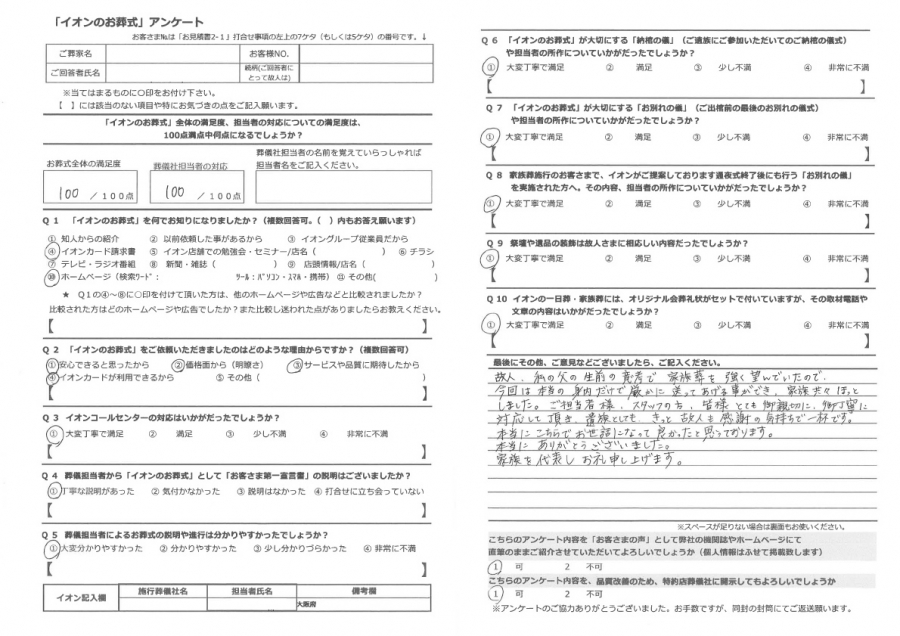 「イオンのお葬式」アンケート
お客さま№は「お見積書2-1」打合せ事項の左上の7ケタ（もしくは5ケタ）の番号です。↓
ご葬家名
お客様NO.
ご回答者氏名
続柄(ご回答者にとって故人は)
※当てはまるものに〇印をお付け下さい。
【　】には該当のない項目や特にお気づきの点をご記入願います。
「イオンのお葬式」全体の満足度、担当者の対応についての満足度は、
100点満点中何点になるでしょうか？
お葬式全体の満足度
100 ／100点
葬儀社担当者の対応
100 ／100点
葬儀社担当者の名前を覚えていらっしゃれば
担当者名をご記入ください。
Q 1　「イオンのお葬式」を何でお知りになりましたか？（複数回答可。（　）内もお答え願います）
① 知人からの紹介　② 以前依頼した事があるから　③ イオングループ従業員だから
④ イオンカード請求書　⑤ イオン店舗での勉強会・セミナー/店名（　）　⑥ チラシ
⑦ テレビ・ラジオ番組　⑧ 新聞・雑誌（　）　⑨ 店頭情報/店名（　）
⑩ ホームページ（検索ﾜｰﾄﾞ：　ﾂｰﾙ：ﾊﾟｿｺﾝ・ｽﾏﾎ・携帯）　⑪ その他(　)
★　Q１の④～⑩に〇印を付けて頂いた方は、他のホームページや広告などと比較されましたか？
比較された方はどのホームページや広告でしたか？また比較し迷われた点がありましたらお教えください。
【　】
Q 2　「イオンのお葬式」をご依頼いただきましたのはどのような理由からですか？（複数回答可）
① 安心できると思ったから　② 価格面から（明瞭さ）　③ サービスや品質に期待したから
④ イオンカードが利用できるから　⑤ その他（　）
【　】
Q 3　イオンコールセンターの対応はいかがだったでしょうか？
① 大変丁寧で満足　② 満足　③ 少し不満　④ 非常に不満
【　】
Q 4　葬儀担当者から「イオンのお葬式」として「お客さま第一宣言書」の説明はございましたか？
① 丁寧な説明があった　② 気付かなかった　③ 説明はなかった　④ 打合せに立ち会っていない
【　】
Q 5　葬儀担当者によるお葬式の説明や進行は分かりやすかったでしょうか？
① 大変分かりやすかった　② 分かりやすかった　③ 少し分かりづらかった　④ 非常に不満
【　】
イオン記入欄
施行葬儀社名
担当者氏名
備考欄
大阪府
Q 6　「イオンのお葬式」が大切にする「納棺の儀」（ご遺族にご参加いただいてのご納棺の儀式）
や担当者の所作についていかがだったでしょうか？
① 大変丁寧で満足　② 満足　③ 少し不満　④ 非常に不満
【　】
Q 7　「イオンのお葬式」が大切にする「お別れの儀」（ご出棺前の最後のお別れの儀式）
や担当者の所作についていかがだったでしょうか？
① 大変丁寧で満足　② 満足　③ 少し不満　④ 非常に不満
【　】
Q 8　家族葬施行のお客さまで、イオンがご提案しております通夜式終了後にも行う「お別れの儀」
を実施された方へ。その内容、担当者の所作についていかがだったでしょうか？
① 大変丁寧で満足　② 満足　③ 少し不満　④ 非常に不満
【　】
Q 9　祭壇や遺品の装飾は故人さまに相応しい内容だったでしょうか？
① 大変丁寧で満足　② 満足　③ 少し不満　④ 非常に不満
【　】
Q 10　イオンの一日葬・家族葬には、オリジナル会葬礼状がセットで付いていますが、その取材電話や
文章の内容はいかがだったでしょうか？
① 大変丁寧で満足　② 満足　③ 少し不満　④ 非常に不満
【　】
最後にその他、ご意見などございましたら、ご記入ください。
故人、私の父の生前の意志で 家族葬を強く望んでいたので、
今回は本当の身内だけで厳かに送ってあげる事ができ、家族共々ほっと
しました。ご担当者様、スタッフの方、皆様とても御親切に、御丁寧に
対応して頂き、遺族としても、きっと故人も感謝の気持ちで一杯です。
本当にこちらでお世話になって良かったと思っております。
本当にありがとうございました。
家族を代表しお礼申し上げます。
※スペースが足りない場合は裏面もお使いください。
こちらのアンケート内容を「お客さまの声」として弊社の機関誌やホームページにて
直筆のままご紹介させていただいてよろしいでしょうか（個人情報はふせて掲載致します）
1　可　2　不可
こちらのアンケート内容を、品質改善のため、特約店葬儀社に開示してもよろしいでしょうか
1　可　2　不可
※アンケートのご協力ありがとうございました。お手数ですが、同封の封筒にてご返送願います。